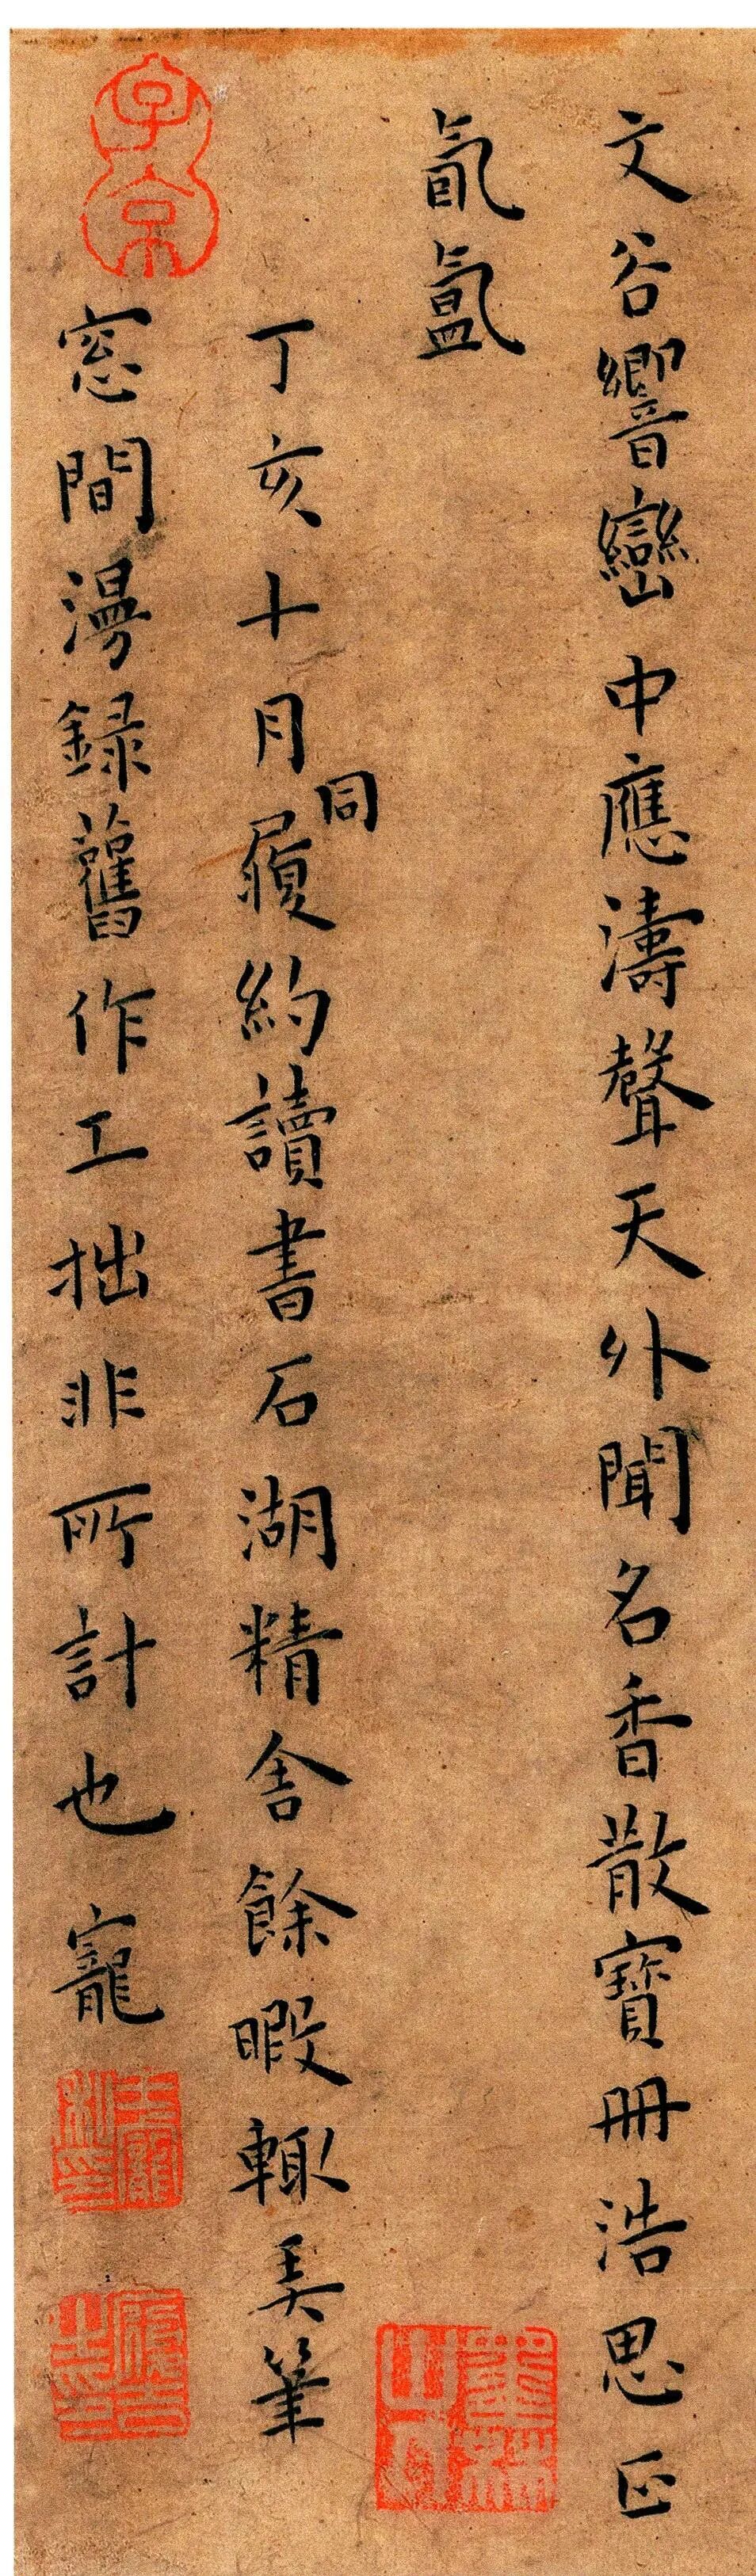 文谷響巒中應濤聲天外聞名香散寶冊浩思正
氤氳
丁亥十月同履約讀書石湖精舍餘暇輙弄筆
窓間漫録舊作工拙非所計也寵
子京
王寵私印
墨林山人